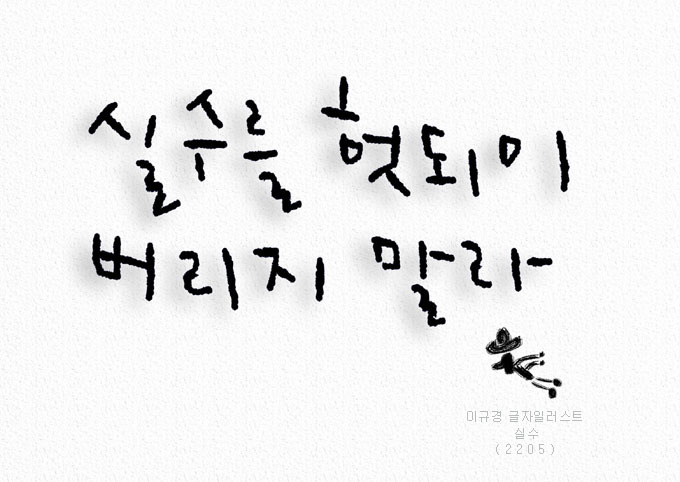 실수를 헛되이
버리지 말라
이규경 글자일러스트
실수
(2205)